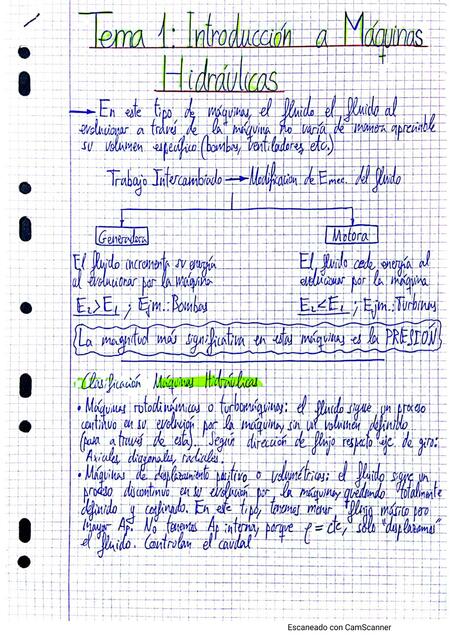 Tema 1: Introducción a Máquinas
Hidráulicas
→ En este tipo de máquinas, el fluido el fluido al
evolucionar a través de la máquina no varía de manera apreciable
su volumen específico (bombas, ventiladores, etc.)
Trabajo Intercambiado → Modificación de Emec. del fluido
Generadora Motora
El fluido incrementa su energía El fluido cede energía al
al evolucionar por la máquina evolucionar por la máquina
E2>E1 ; Ejm.: Bombas E2≤E1 ; Ejm.: Turbinas
La magnitud más significativa en estas máquinas es la PRESIÓN
Clasificación Máquinas Hidráulicas
• Máquinas rotodinámicas o turbomáquinas: el fluido sigue un proceso
continuo en su evolución por la máquina, sin un volumen definido
(pasa a través de esta). Según dirección de flujo respecto eje de giro:
Axiales, diagonales, radiales.
• Máquinas de desplazamiento positivo o volumétricas: el fluido sigue un
proceso discontinuo en su evolución por la máquina, quedando totalmente
definido y confinado. En este tipo, tenemos menor flujo másico pero
mayor Δp. No tenemos Δp interna, porque ρ = cte, solo "desplazamos"
el fluido. Controlan el caudal
Escaneado con CamScanner